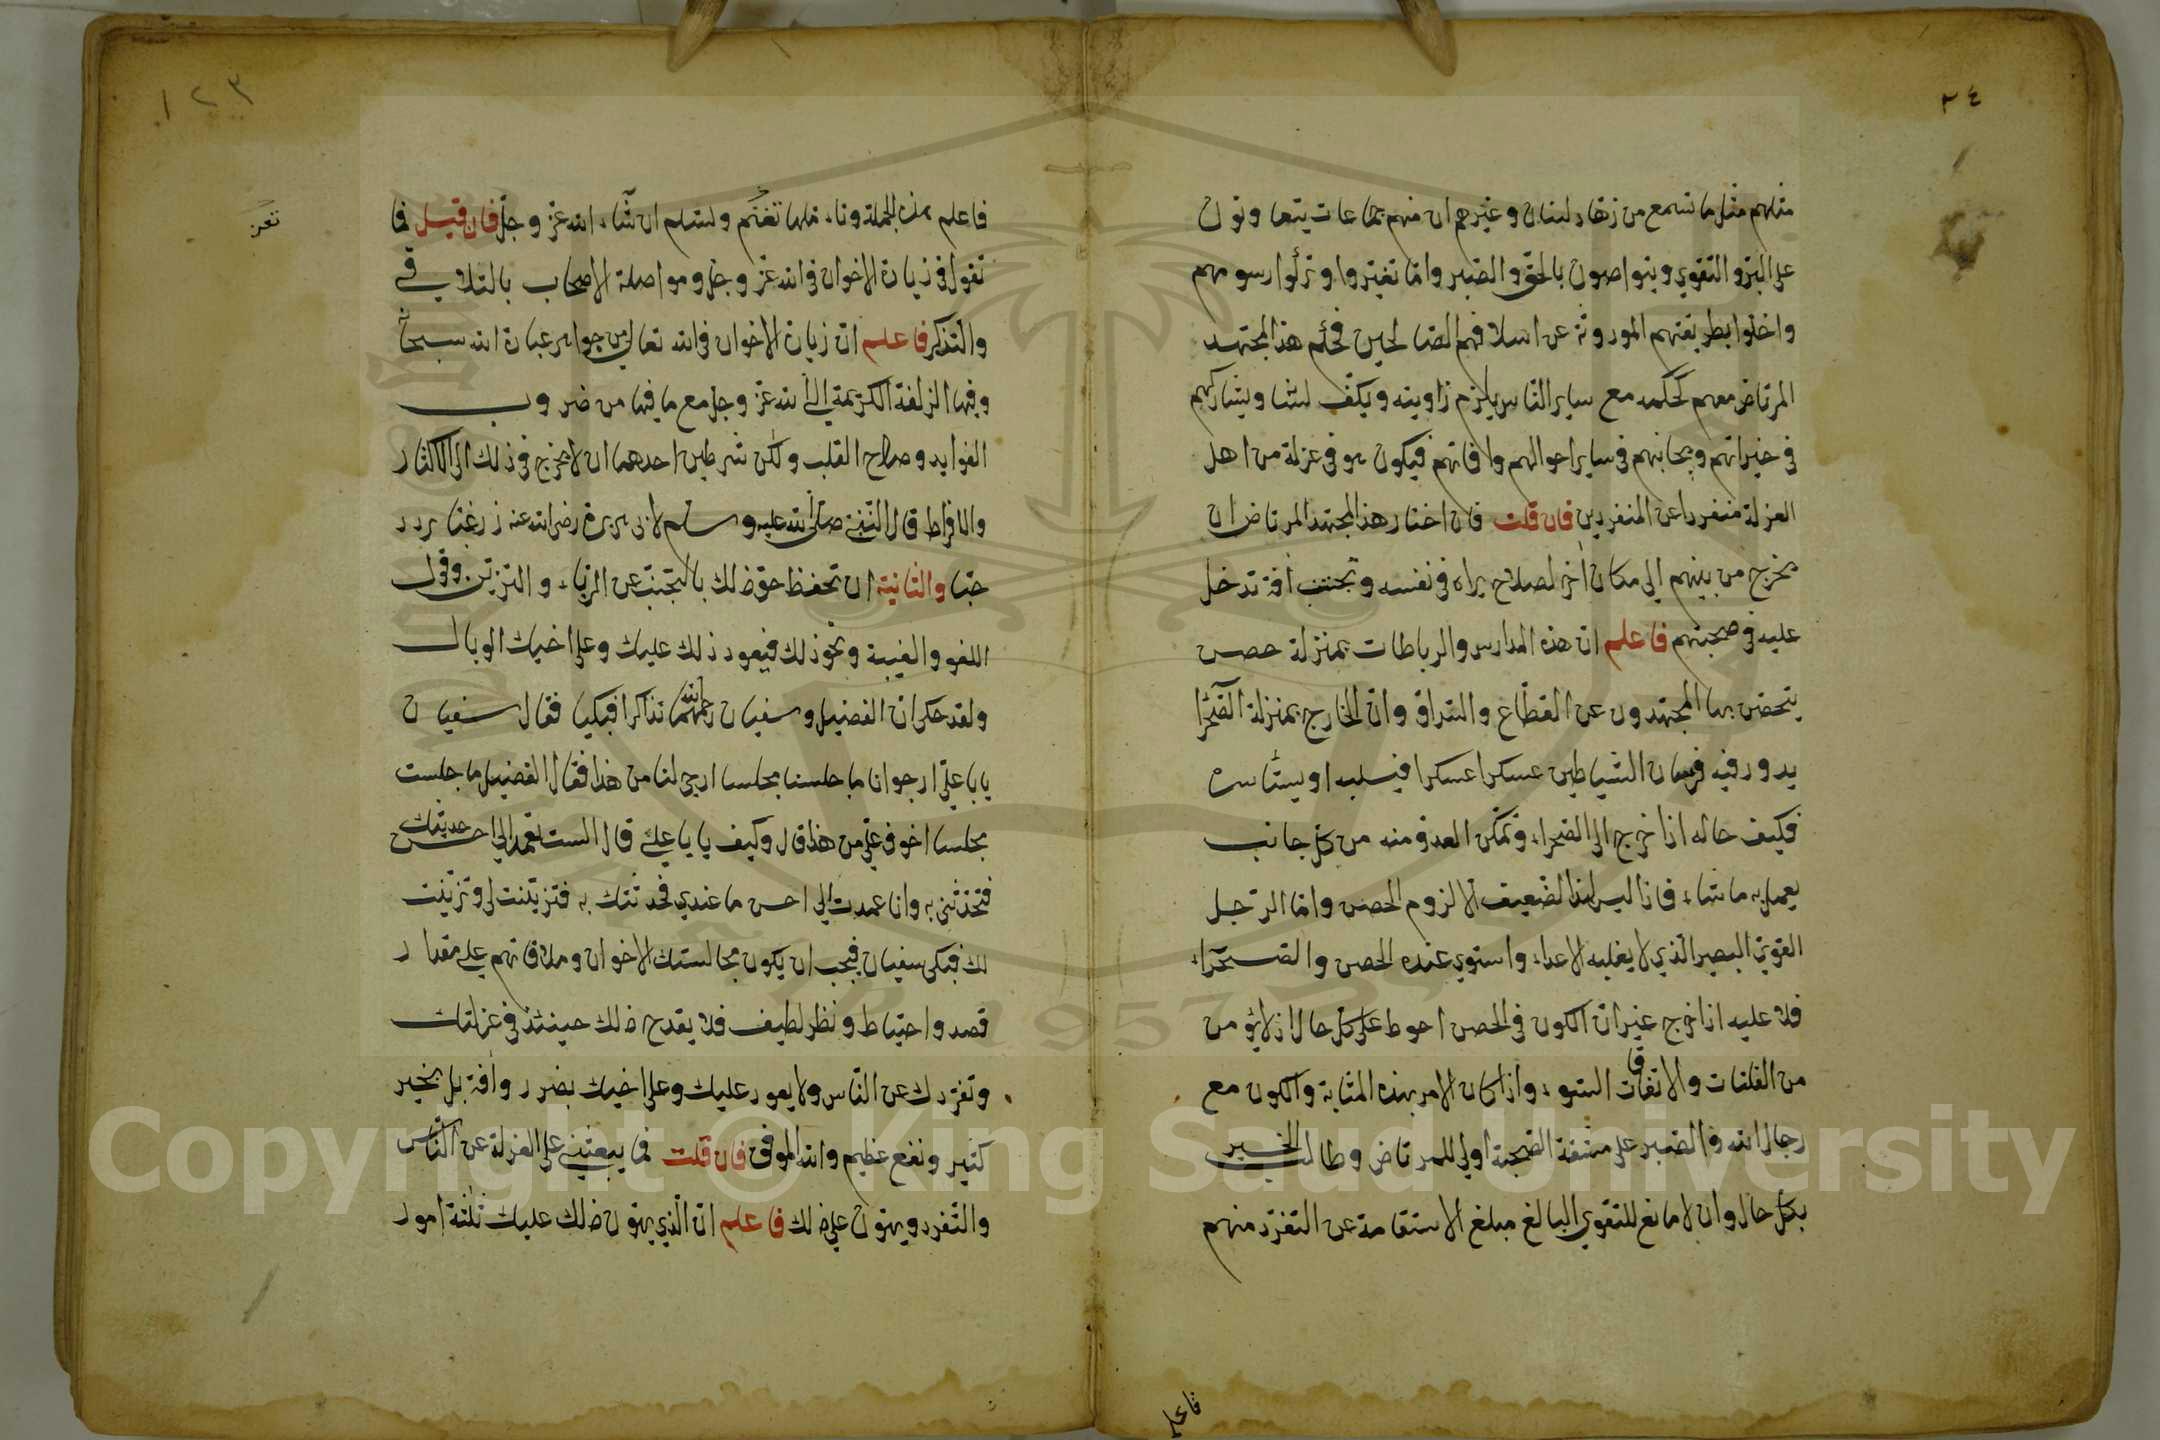 ٣٤
مثلهم مثل ما تسمع من زهاد لبنان وغيرهم ان منهم جماعات يتعاونون
على البر والتقوى ويتواصون بالحق والصبر واما تغيروا وتركوا رسومهم
واخلوا بطريقتهم الموروثة عن اسلافهم الصالحين فحكم هذا المجتهد
المرتاض معهم كحكمه مع ساير الناس يلزم زاويته ويكف لسانه ويشاركهم
في خيراتهم ويجانبهم في ساير احوالهم وافاتهم فيكون هو في عزلة من اهل
العزلة منفردا عن المنفردين فان قلت فان اختار هذا المجتهد المرتاض ان
يخرج من بينهم الى مكان اخر لصلاح يراه في نفسه وتجنب افة تدخل
عليه في صحبتهم فاعلم ان هذه المدارس والرباطات بمنزلة حصن
يتحصن بها المجتهدون عن القطاع والسراق وان الخارج بمنزلة الصحراء
يدور فيه فرسان الشياطين عسكرا عسكرا فيسلبه او يستأسره
فكيف حاله اذا خرج الى الصحراء وتمكن العدو منه من كل جانب
يعمل به ما شاء فاذا ليس لهذا الضعيف الا لزوم الحصن واما الرجل
القوي البصير الذي لا يغلبه الاعداء واستوى عنده الحصن والصحراء
فلا عليه اذا خرج غير ان الكون في الحصن احوط على كل حال اذ لا يؤمن
من الفلتات والاتفاقات السوء واذا كان الامر بهذه المثابة والكون مع
رجال الله والصبر على مشقة الصحبة اولى للمرتاض وطالب الخير
بكل حال وان لا مانع للتقوي البالغ مبلغ الاستقامة عن التفرد منهم
فاعلم
١٢٣
فاعلم هذه الجملة وتأملها تغنم وتسلم ان شاء الله عز وجل فان قيل فما
تقول في زيارة الاخوان في الله عز وجل ومواصلة الاصحاب بالتلاقي
والتذكر فاعلم ان زيارة الاخوان في الله تعالى من جواهر عبادة الله سبحانه
وفيها الزلفة الكريمة الى الله عز وجل مع ما فيها من ضروب
الفوايد وصلاح القلب ولكن بشرطين احدهما ان لا تخرج في ذلك الى الاكثار
والافراط قال النبي صلى الله عليه وسلم لابي هريرة رضي الله عنه زر غبا تردد
حبا والثانية ان تحفظ حق ذلك بالتجنب عن الرياء والتزين وقول
اللغو والغيبة ونحو ذلك فيعود ذلك عليك وعلى اخيك الوبال
ولقد حكي ان الفضيل وسفيان رحمهما الله تذاكرا فبكيا فقال سفيان
يا با علي ارجو انا ما جلسنا مجلسا ارجى لنا من هذا فقال الفضيل ما جلست
مجلسا اخوف علي من هذا قال وكيف يا با علي قال الست تعمد الى احسن حديثك
فتحدثني به وانا عمدت الى احسن ما عندي فحدثتك به فتزينت لي وتزينت
لك فبكى سفيان فيجب ان يكون مجالستك الاخوان وملاقاتهم على مقدار
قصد واحتياط ونظر لطيف فلا يقدح ذلك حينئذ في عزلتك
وتفردك عن الناس ولا يعود عليك وعلى اخيك بضرر وافة بل بخير
كثير ونفع عظيم والله الموفق فان قلت فما يبعثني على العزلة عن الناس
والتفرد ويهون علي ذلك فاعلم ان الذي يهون ذلك عليك ثلثة امور
Copyright © King Saud University
1957